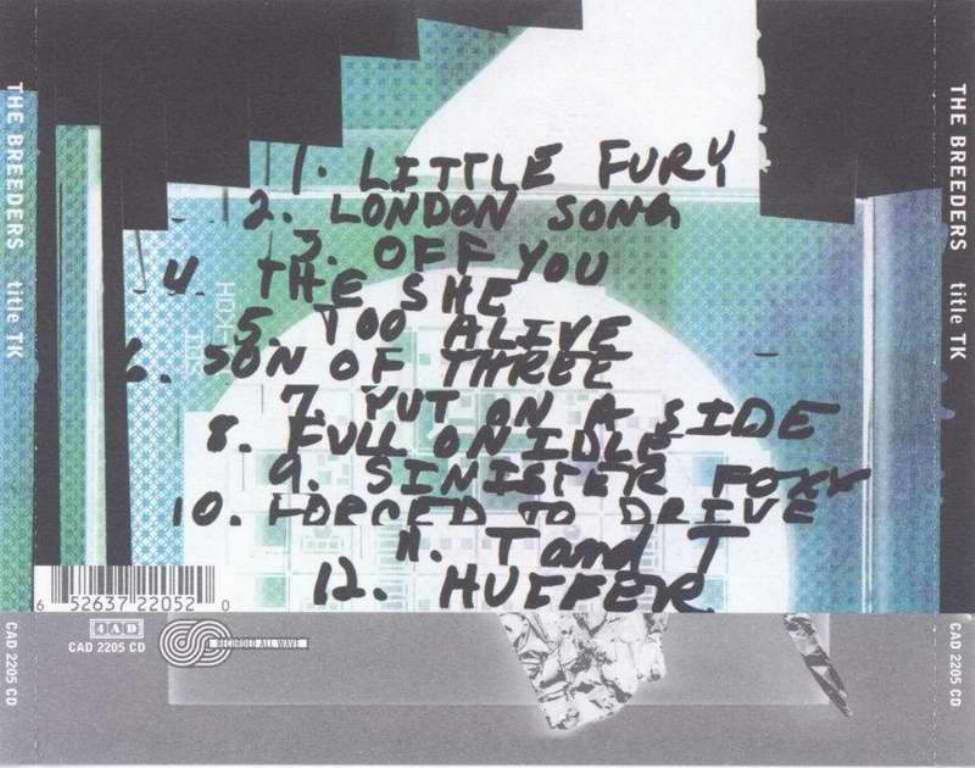 THE BREEDERS title TK
1. LITTLE FURY
2. LONDON SONG
3. OFF YOU
4. THE SHE
5. TOO ALIVE
6. SON OF THREE
7. PUT ON A SIDE
8. FULL ON IDLE
9. SINISTER FOXX
10. FORCED TO DRIVE
11. T and T
12. HUFFER
6 52637 22052 0
4AD
CAD 2205 CD
RECORDED ALL WAVE
CAD 2205 CD
THE BREEDERS title TK
CAD 2205 CD